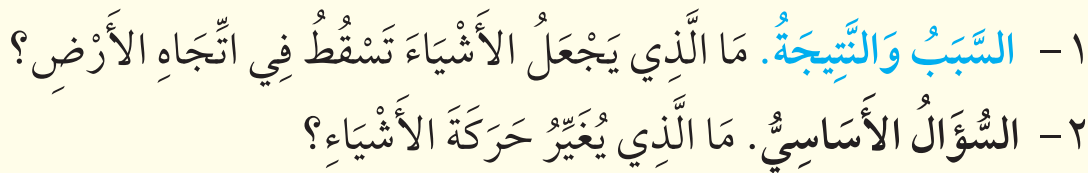 ١- السَّبَبُ وَالنَّتِيجَةُ. مَا الَّذِي يَجْعَلُ الأَشْيَاءَ تَسْقُطُ فِي اتِّجَاهِ الأَرْضِ؟
٢- السُّؤَالُ الأَسَاسِيُّ. مَا الَّذِي يُغَيِّرُ حَرَكَةَ الأَشْيَاءِ؟